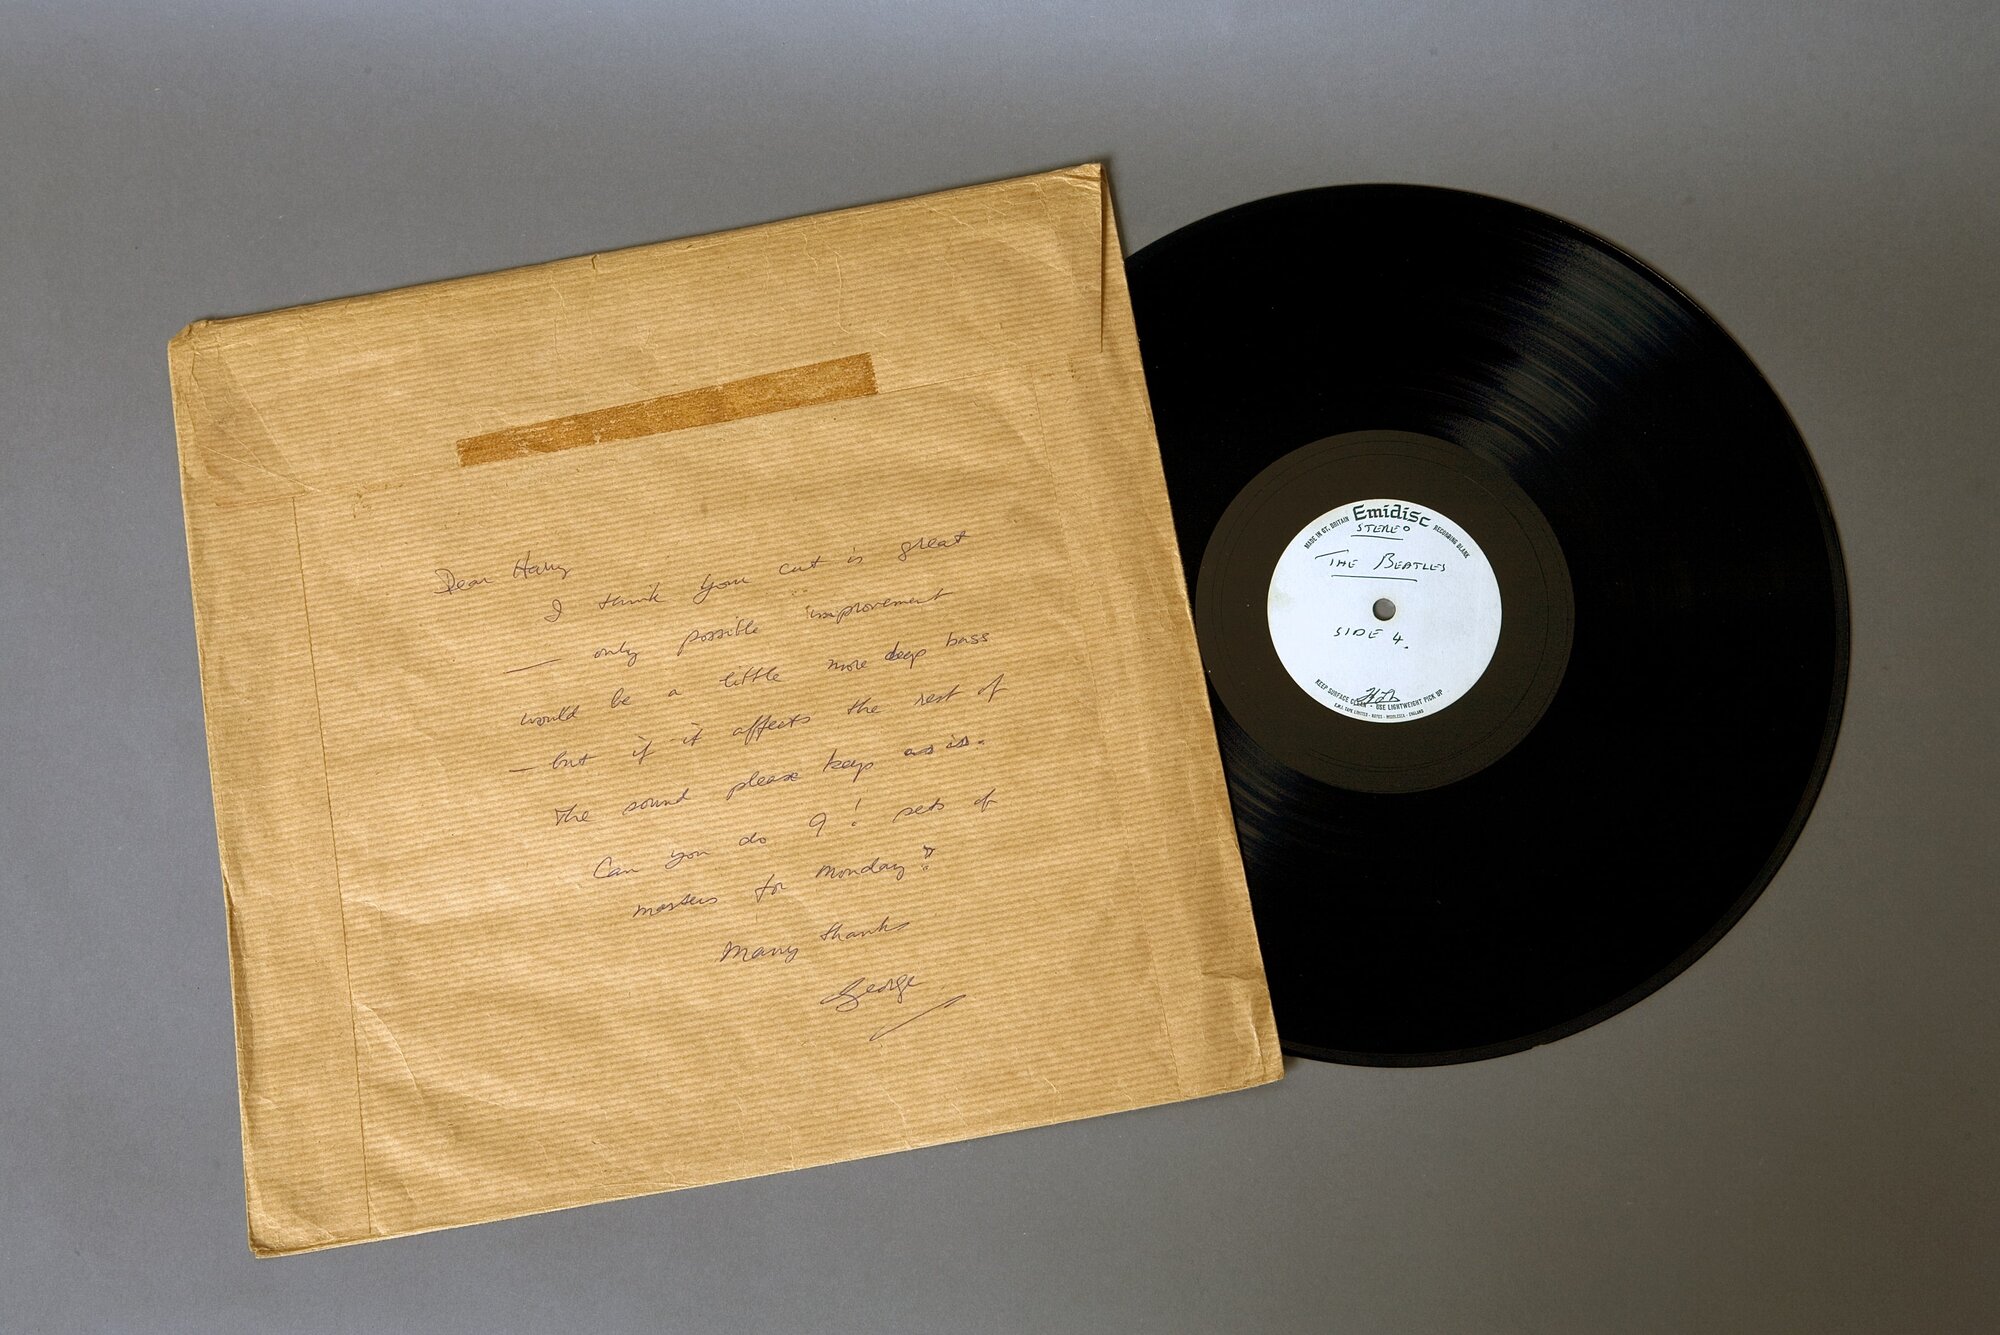 Dear Harry
I think your cut is great
— only possible improvement
would be a little more deep bass
— but if it affects the rest of
the sound please keep as is.
Can you do 9! sets of
masters for Monday?
Many thanks
George
MADE IN GT. BRITAIN Emidisc RECORDING BLANK
STEREO
THE BEATLES
SIDE 4.
KEEP SURFACE CLEAN · USE LIGHTWEIGHT PICK UP
E.M.I. TAPE LIMITED · HAYES · MIDDLESEX · ENGLAND